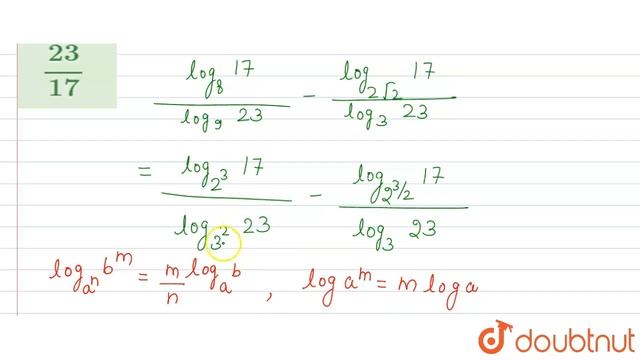 23/17
log_8 17 / log_9 23 - log_{2√2} 17 / log_3 23
= log_{2^3} 17 / log_{3^2} 23 - log_{2^{3/2}} 17 / log_3 23
log_{a^n} b^m = m/n log_a b , log a^m = m log a
doubtnut